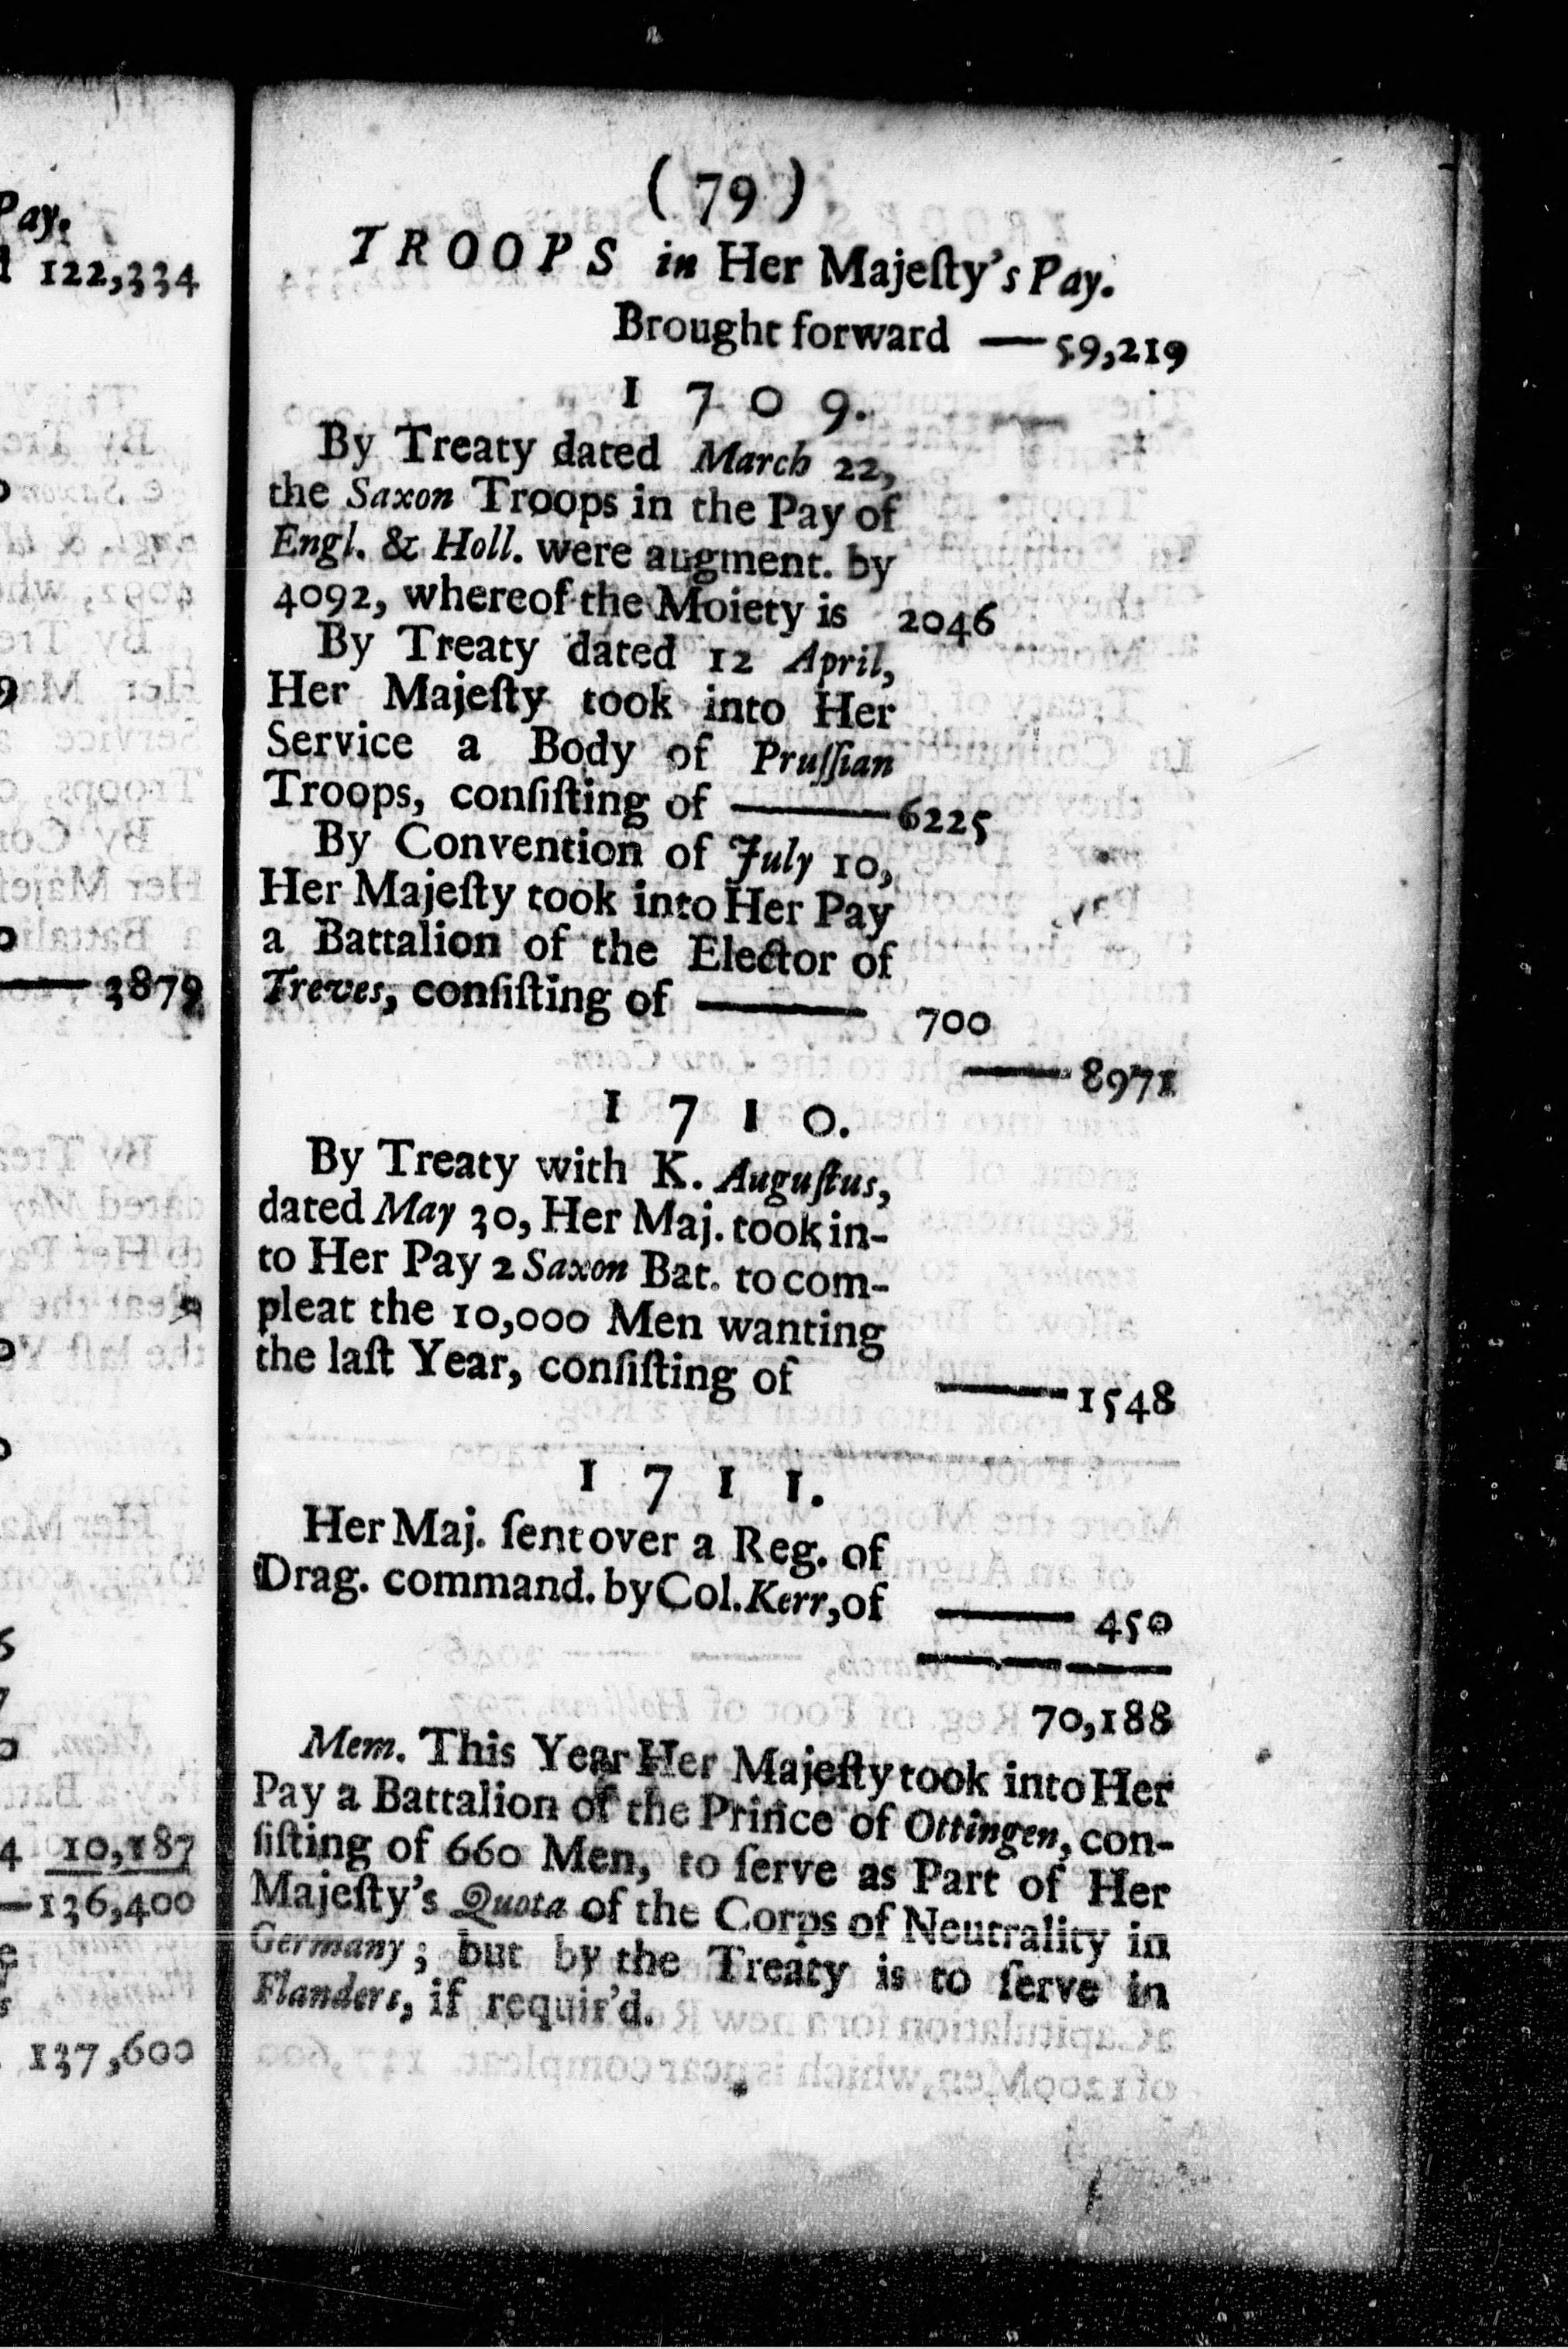 Pay.
122,334
3879
10,187
136,400
137,600
( 79 )
TROOPS in Her Majeſty's Pay.
Brought forward — 59,219
1709.
By Treaty dated March 22,
the Saxon Troops in the Pay of
Engl. & Holl. were augment. by
4092, whereof the Moiety is 2046
By Treaty dated 12 April,
Her Majeſty took into Her
Service a Body of Pruſſian
Troops, conſiſting of — 6225
By Convention of July 10,
Her Majeſty took into Her Pay
a Battalion of the Elector of
Treves, conſiſting of — 700
— 8971
1710.
By Treaty with K. Auguſtus,
dated May 30, Her Maj. took in-
to Her Pay 2 Saxon Bat. to com-
pleat the 10,000 Men wanting
the laſt Year, conſiſting of — 1548
1711.
Her Maj. ſent over a Reg. of
Drag. command. by Col. Kerr, of — 450
70,188
Mem. This Year Her Majeſty took into Her
Pay a Battalion of the Prince of Ottingen, con-
ſiſting of 660 Men, to ſerve as Part of Her
Majeſty's Quota of the Corps of Neutrality in
Germany; but by the Treaty is to ſerve in
Flanders, if requir'd.